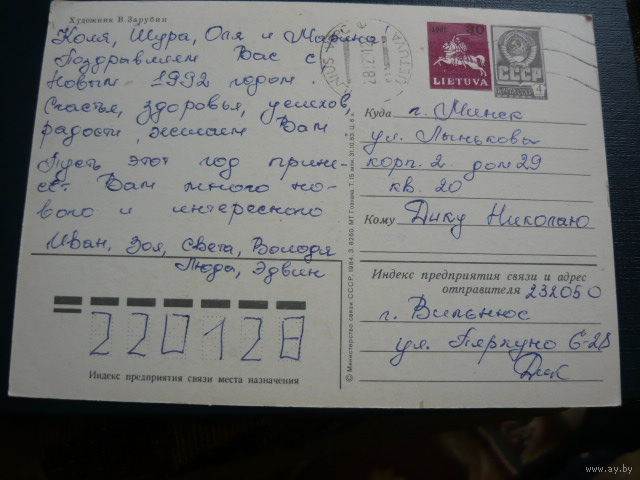 Художник В. Зарубин
Коля, Шура, Оля и Марина
Поздравляем Вас с
Новым 1992 годом.
Счастья, здоровья, успехов,
радости желаем Вам
Пусть этот год прине-
сет Вам много но-
вого и интересного
Иван, Зоя, Света, Володя
Люда, Эдвин
220128
Индекс предприятия связи места назначения
© Министерство связи СССР, 1984. З. 8260. МТ Гознака.
1991 30
LIETUVA
СССР
4
Куда г. Минск
ул. Лынькова
корп. 2 дом 29
кв. 20
Кому Дику Николаю
Индекс предприятия связи и адрес
отправителя 232050
г. Вильнюс
ул. Пяркуно 6-28
Дик
www.ay.by